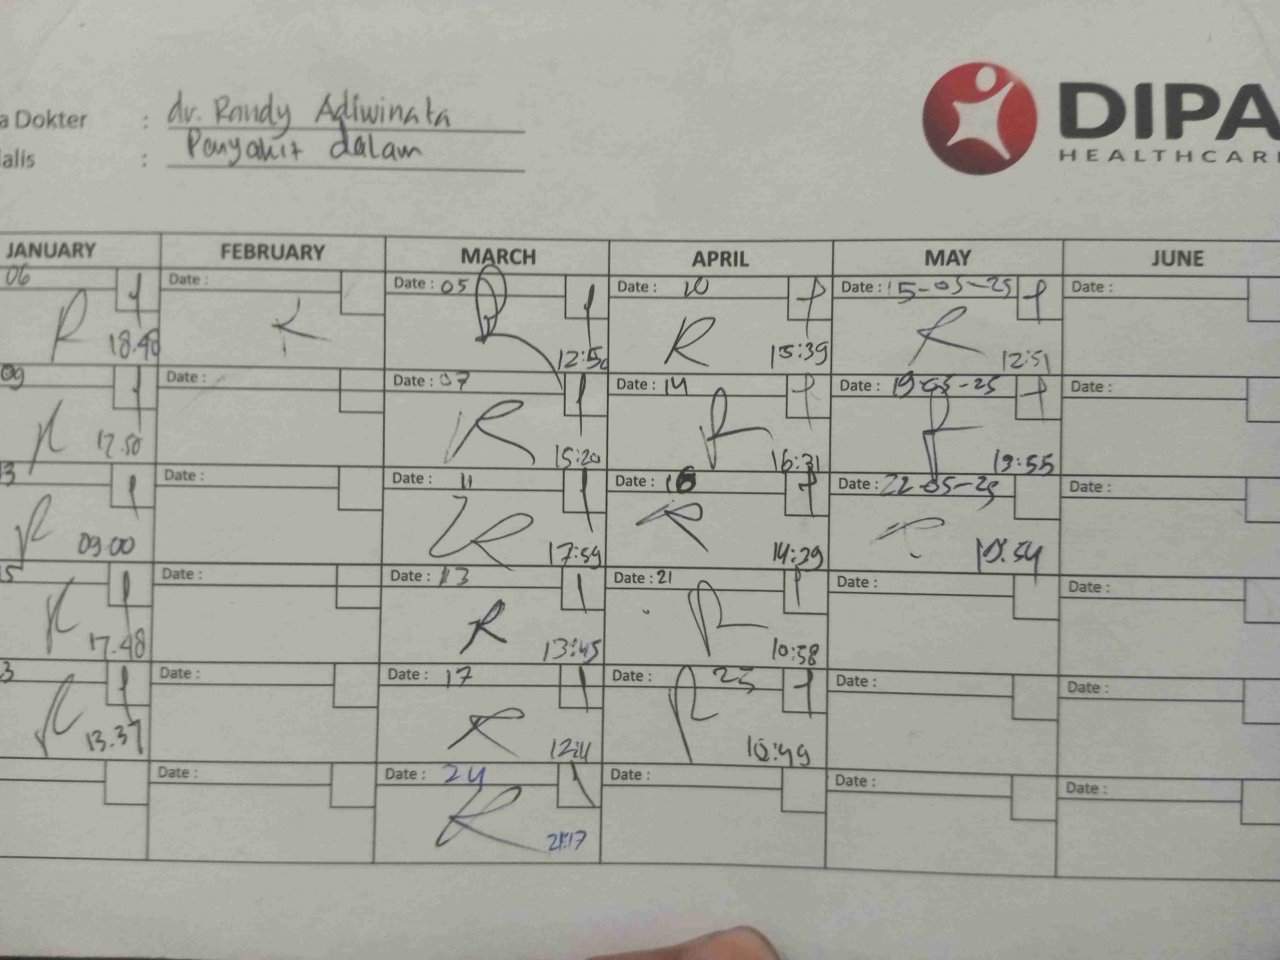 a Dokter : dr. Randy Adiwinata
alis : Penyakit dalam
DIPA
HEALTHCARE
JANUARY FEBRUARY MARCH APRIL MAY JUNE
06 Date : Date : 05 Date : 10 Date : 15-05-25 Date :
18.48 12:50 15:39 12:51
09 Date : Date : 07 Date : 14 Date : 19-05-25 Date :
17.50 15:20 16:31 19:55
3 Date : Date : 11 Date : 16 Date : 22-05-25 Date :
09.00 17:59 14:39
5 Date : Date : 13 Date : 21 Date : Date :
17.48 13:45 10:58
3 Date : Date : 17 Date : 25 Date : Date :
13.37 12:11 10:49
Date : Date : 24 Date : Date : Date :
21:17